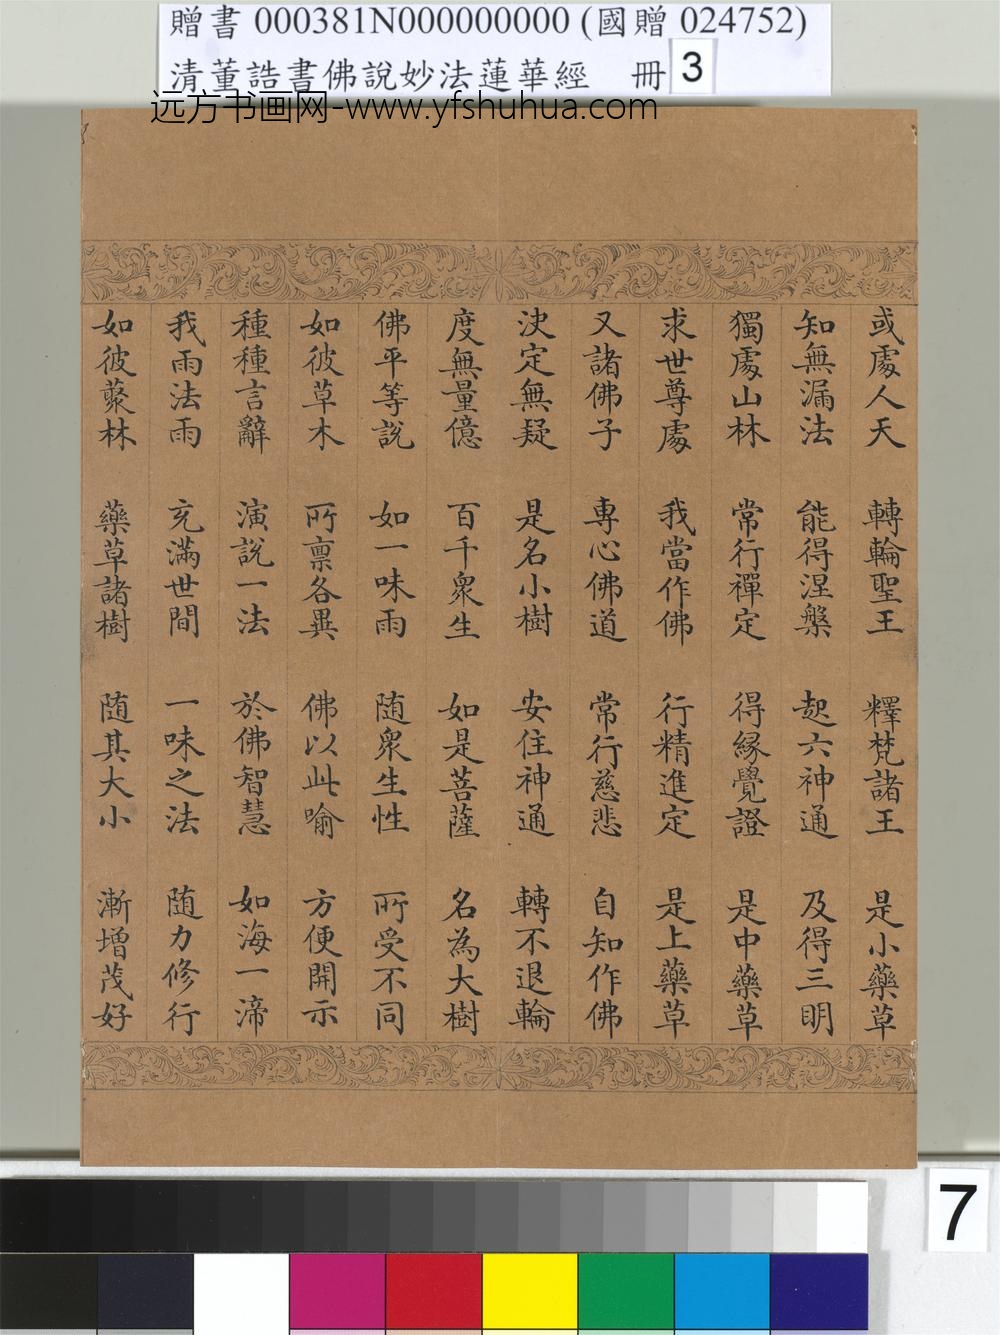 贈書 000381N000000000 (國贈 024752)
清董誥書佛說妙法蓮華經 冊 3
远方书画网-www.yfshuhua.com
或處人天 轉輪聖王 釋梵諸王 是小藥草
知無漏法 能得涅槃 起六神通 及得三明
獨處山林 常行禪定 得緣覺證 是中藥草
求世尊處 我當作佛 行精進定 是上藥草
又諸佛子 專心佛道 常行慈悲 自知作佛
決定無疑 是名小樹 安住神通 轉不退輪
度無量億 百千衆生 如是菩薩 名為大樹
佛平等說 如一味雨 随衆生性 所受不同
如彼草木 所禀各異 佛以此喻 方便開示
種種言辭 演說一法 於佛智慧 如海一渧
我雨法雨 充滿世間 一味之法 随力修行
如彼藂林 藥草諸樹 随其大小 漸增茂好
7